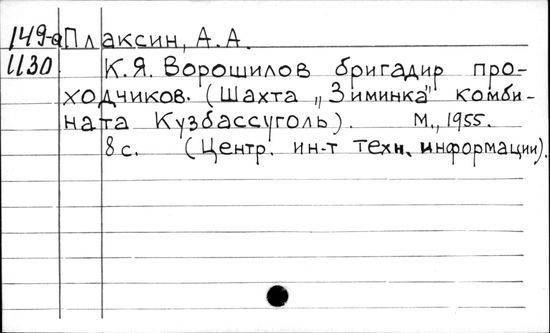 149-а Плаксин, А.А.
1130 К.Я. Ворошилов бригадир про-
ходчиков. (Шахта „Зиминка" комби-
ната Кузбассуголь). М., 1955.
8 с. (Центр. ин-т техн. информации).